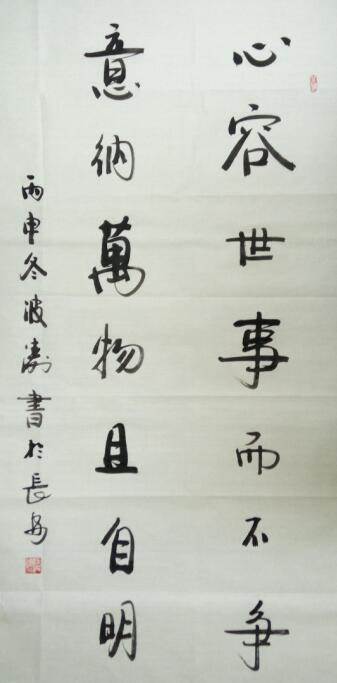 心容世事而不争
意納萬物且自明
丙申冬波涛書於長安